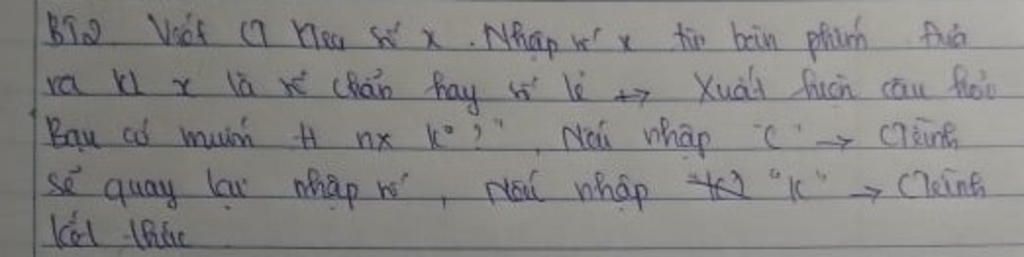 BT2 Viết CT Ktra số x. Nhập số x từ bàn phím đưa
ra KL x là số chẵn hay số lẻ ↔ Xuất hiện câu hỏi
Bạn có muốn tt nx k°?", Nếu nhập "C" → CTrình
sẽ quay lại nhập số, Nếu nhập "K" → CTrình
kết thúc